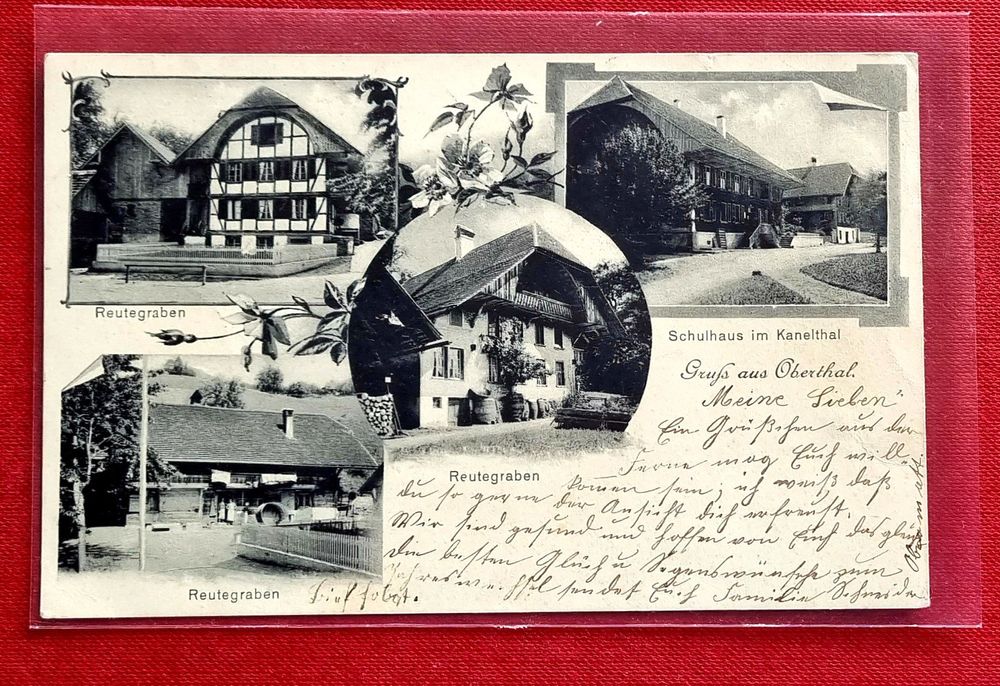 Reutegraben
Schulhaus im Kanelthal
Gruss aus Oberthal.
Reutegraben
Reutegraben
Meine Lieben"
Ein Grüßchen aus der
Ferne mag Euch will
kommen sein; ich weiß daß
du so gerne der Ansicht dich erfreust.
Wir sind gesund und hoffen von Euch das
die besten Glück u Segenswünsche zum
Jahreswechsel sendet Euch Familie Schneider